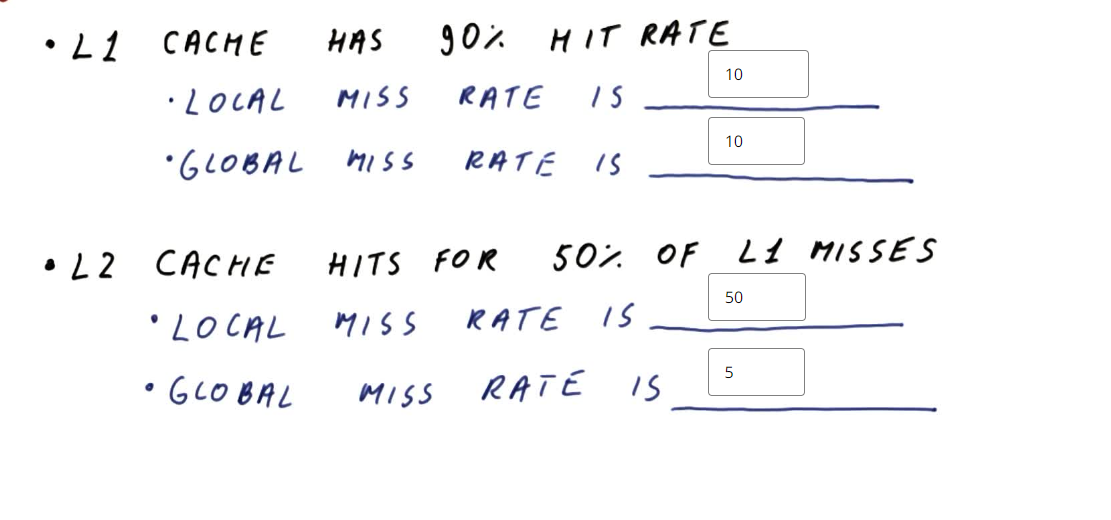 • L1 CACHE HAS 90% HIT RATE
• LOCAL MISS RATE IS 10
• GLOBAL MISS RATE IS 10
• L2 CACHE HITS FOR 50% OF L1 MISSES
• LOCAL MISS RATE IS 50
• GLOBAL MISS RATE IS 5